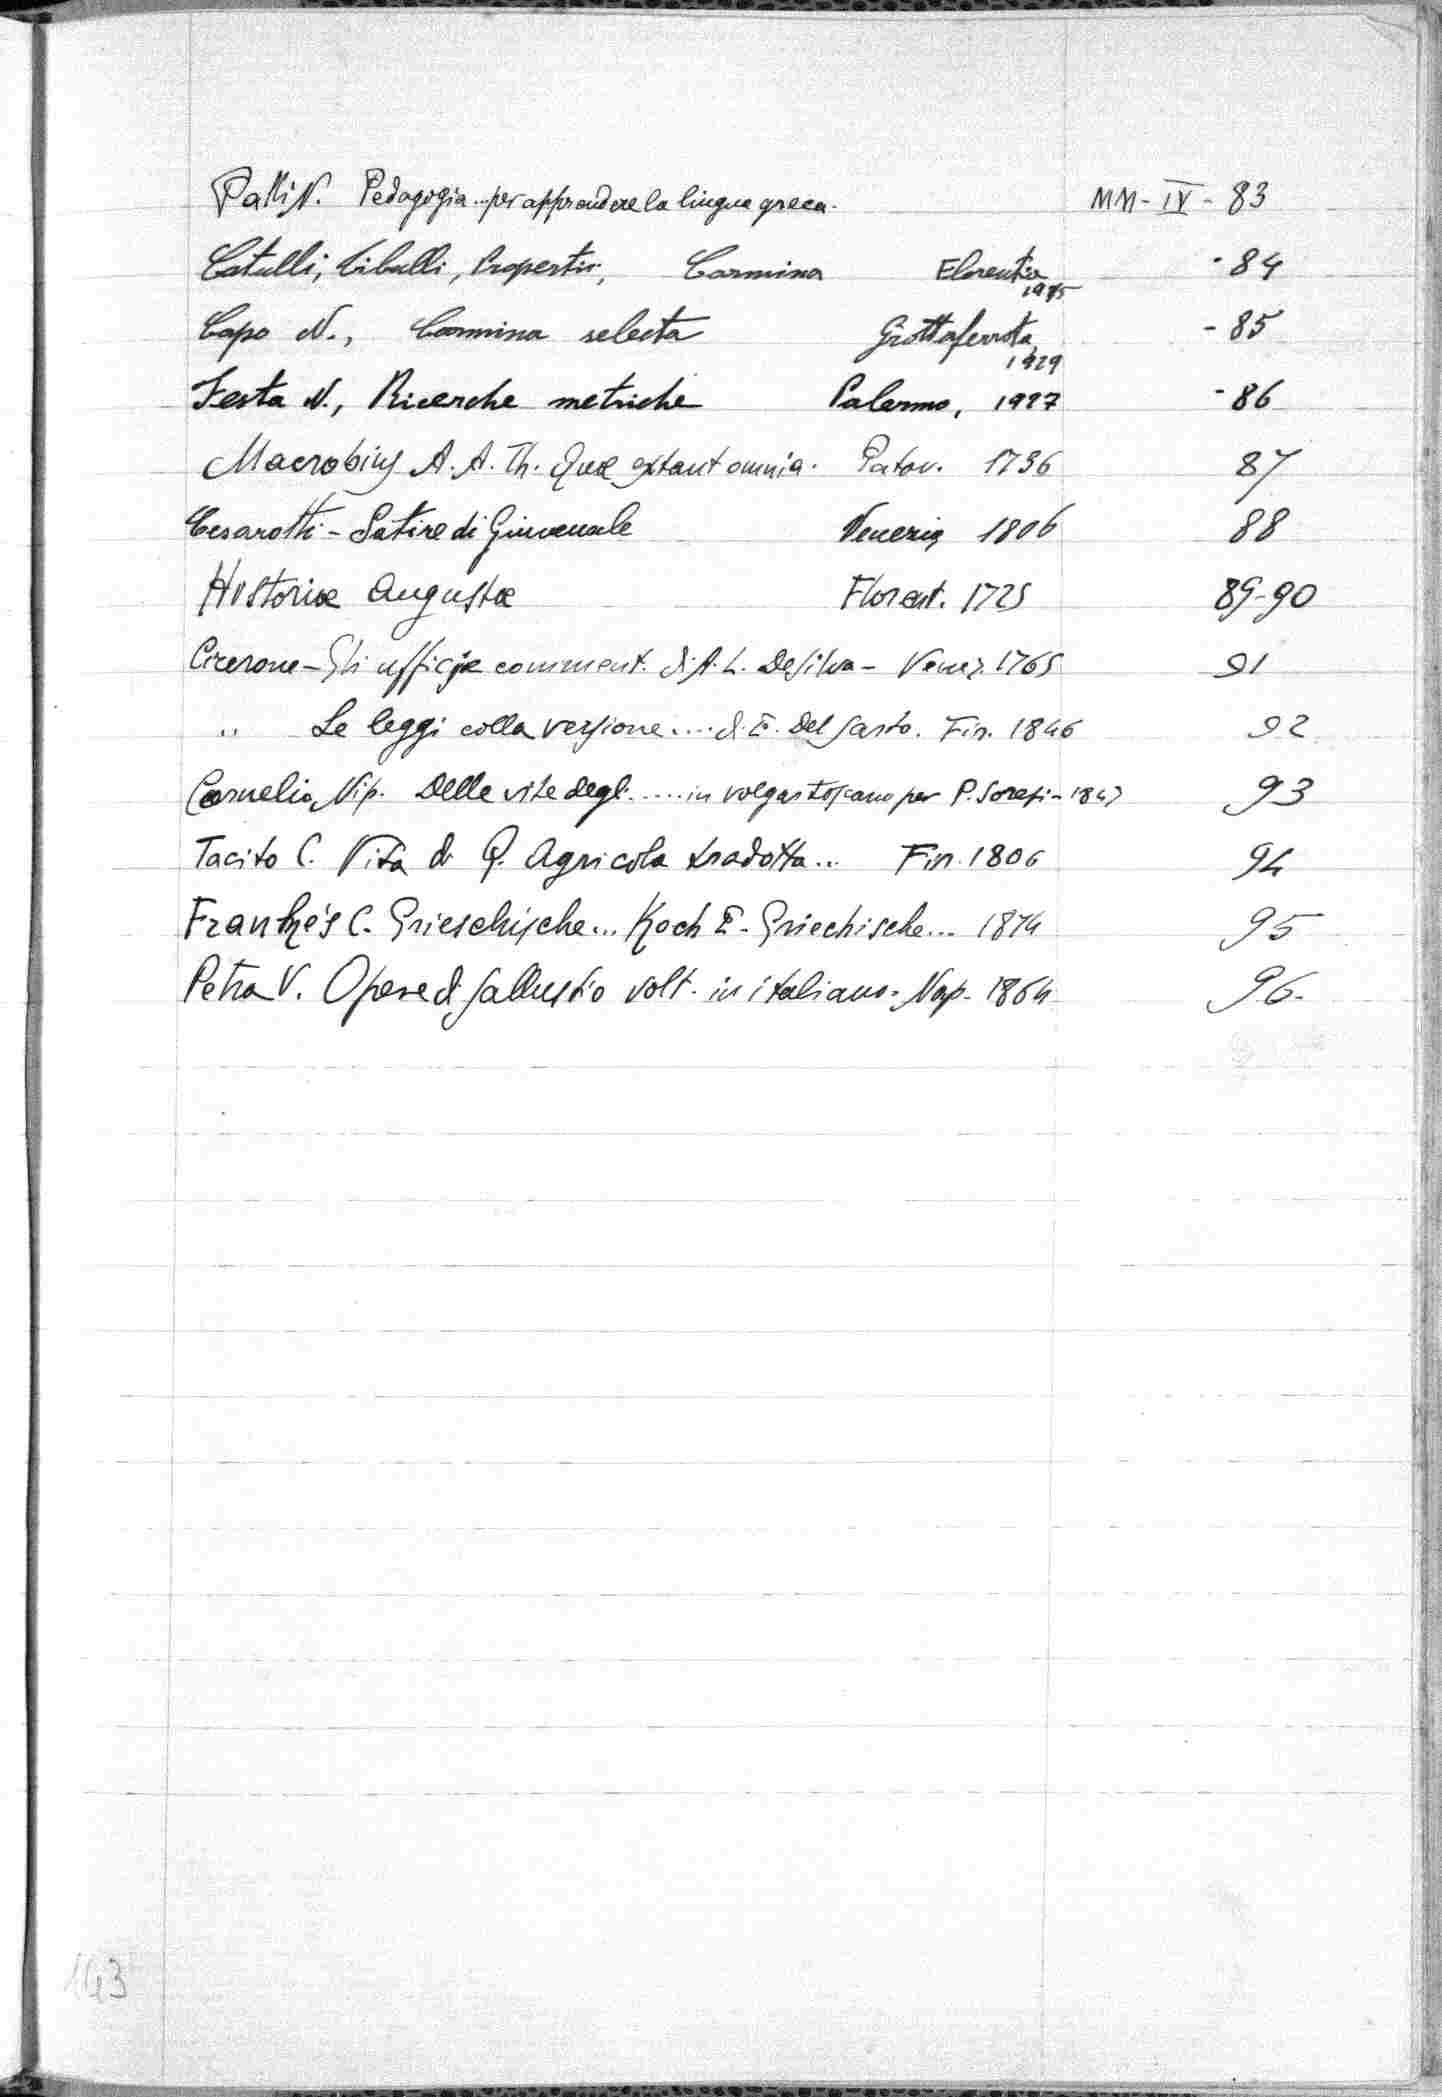 Patti N. Pedagogia ... per apprendere la lingua greca. MM - IV - 83
Catulli, Tibulli, Propertii, Carmina Florentiae - 84
Capo N., Carmina selecta Grottaferrata 1929 - 85
Festa N., Ricerche metriche Palermo, 1927 - 86
Macrobius A. A. Th. Quæ extant omnia. Patav. 1736 87
Cesarotti - Satire di Giovenale Venezia 1806 88
Historiæ Augustæ Florent. 1725 89-90
Cicerone - Gli ufficj e comment. di A. L. De Silva - Venez. 1765 91
" Le leggi colla versione .... di E. Del Sarto. Fir. 1846 92
Cornelio Nip. Delle vite degli ..... in volgar toscano per P. Soresi - 1847 93
Tacito C. Vita di Q. Agricola tradotta ... Fir. 1806 94
Franke's C. Grieschische ... Koch E. Griechische ... 1874 95
Petra V. Opere di Sallustio volt. in italiano. Nap. 1864 96.
143